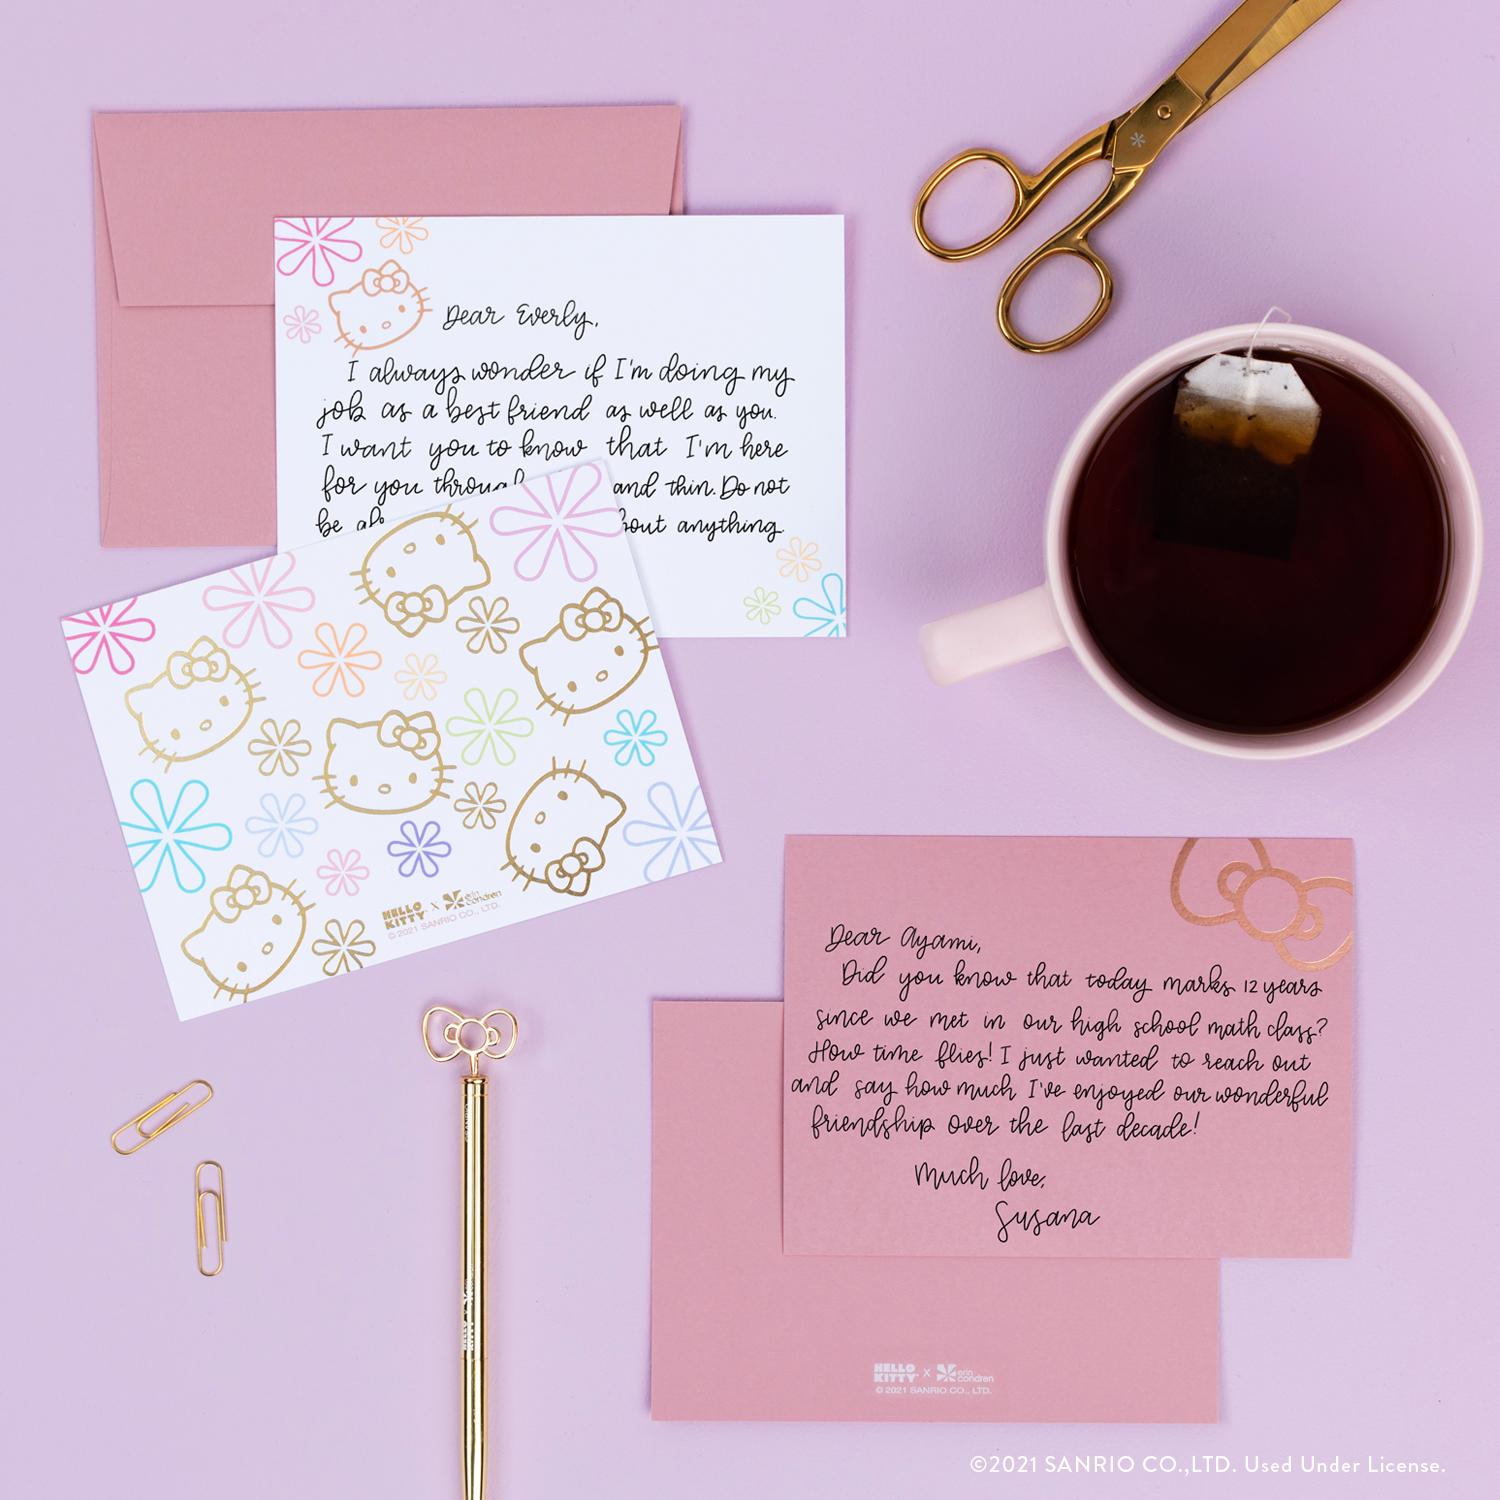 Dear Everly,
I always wonder if I'm doing my
job as a best friend as well as you.
I want you to know that I'm here
for you and thin. Do not
be anything.
HELLO KITTY X erin condren
© 2021 SANRIO CO., LTD.
Dear Ayami,
Did you know that today marks 12 years
since we met in our high school math class?
How time flies! I just wanted to reach out
and say how much I've enjoyed our wonderful
friendship over the last decade!
Much love,
Susana
HELLO KITTY X erin condren
© 2021 SANRIO CO., LTD.
HELLO KITTY X
©2021 SANRIO CO.,LTD. Used Under License.